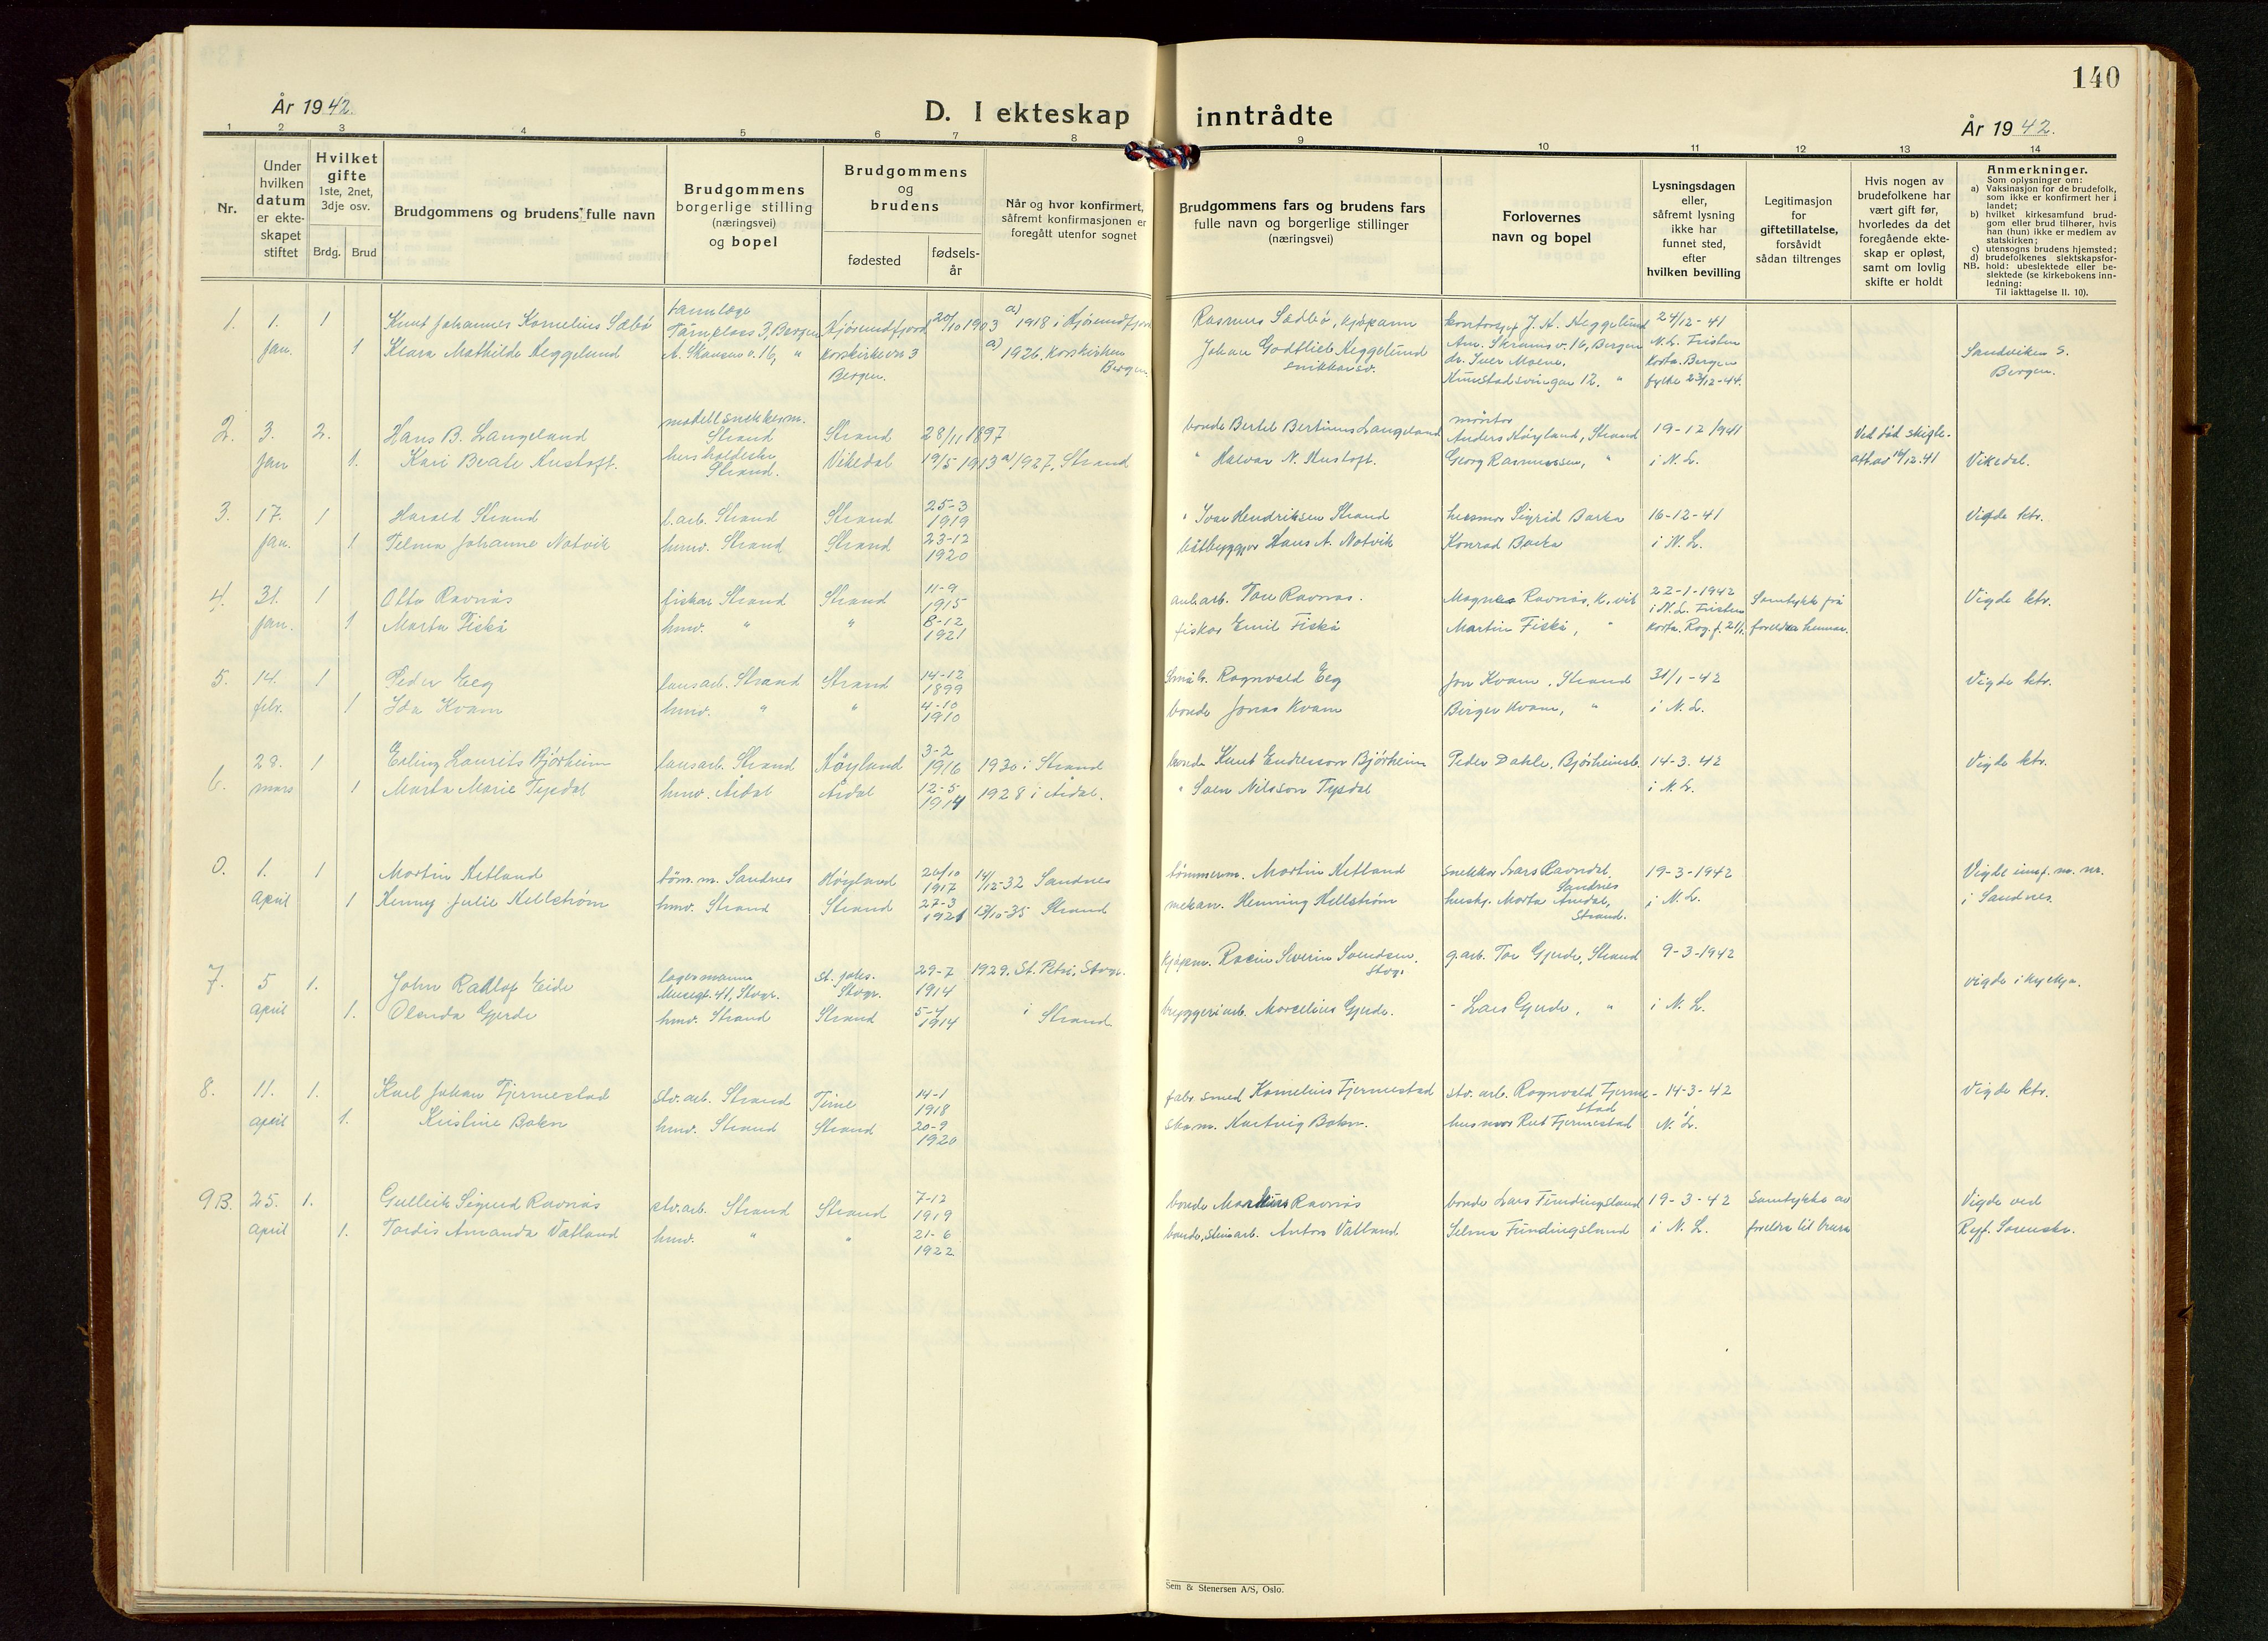 140
År 1942.
D. I ekteskap inntrådte
År 1942.
1 2 3 4 5 6 7 8 9 10 11 12 13 14
Nr.
Under hvilken datum er ekteskapet stiftet
Hvilket gifte 1ste, 2net, 3dje osv.
Brdg. Brud
Brudgommens og brudens fulle navn
Brudgommens borgerlige stilling (næringsvei) og bopel
Brudgommens og brudens
fødested
fødsels-år
Når og hvor konfirmert, såfremt konfirmasjonen er foregått utenfor sognet
Brudgommens fars og brudens fars fulle navn og borgerlige stillinger (næringsvei)
Forlovernes navn og bopel
Lysningsdagen eller, såfremt lysning ikke har funnet sted, efter hvilken bevilling
Legitimasjon for giftetillatelse, forsåvidt sådan tiltrenges
Hvis nogen av brudefolkene har vært gift før, hvorledes da det foregående ekteskap er opløst, samt om lovlig skifte er holdt
Anmerkninger.
Som oplysninger om:
a) Vaksinasjon for de brudefolk, som ikke er konfirmert her i landet;
b) hvilket kirkesamfund brudgom eller brud tilhører, hvis han (hun) ikke er medlem av statskirken;
c) utensogns brudens hjemsted;
d) brudefolkenes slektskapsforhold: ubeslektede eller beslektede (se kirkebokens innledning:
NB.
Til iakttagelse II. 10).
1. 1. 1 Knut Johannes Kornelius Sæbø tannlæge Bergen Hjørundfjord 20/10 1903 a) 1918 i Hjørundfjord Rasmus Sæbø, kjøpmann J. H. Heggelund 24/12-41
Jan. 1 Klara Mathilde Heggelund v. 16, " Korskirken 3 Bergen. a) 1926. Korskirken Bergen. Johan Godtlieb Heggelund v. 16, Bergen dr. Iver 12. " N. L. Fristen Bergen fylke 23/12-41. Sandviken S. Bergen.
2. 3. 2. Hans B. Langeland modellsnekkerm. Strand Strand 28/11 1897 bonde Bertel Bertinus Langeland Anders Høyland, Strand 19-12 1941 Ved død
Jan 1. Kari Beate husholderske Strand. Vikedal 19/5 1913 a) 1927, Strand " Halvar N. Georg Rasmussen, " i N. L. 16/12.41 Vikedal.
3. 17. 1 Harald Strand f.arb. Strand Strand 25-3 1919 " Ivar Hendriksen Strand husmor Sigrid Barka 16-12-41 Vigde ktr.
Jan. 1 Telma Johanne Notvik hmv. Strand Strand 23-12 1920 båtbygger Hans A. Notvik Konrad Barka i N. L.
4. 31. 1 Otto Ravnås fiskar Strand Strand 11-9 1915 anl.arb. Tore Ravnås. Magnus Ravnås, 22-1-1942 i N. L. Fristen Samtykke frå Vigde ktr.
jan. 1 Marta Fiskå hmv. " " 8-12 1921 fiskar Emil Fiskå Martin Fiskå, " korta. Rog. f. 21/1. foreldra hennar.
5. 14. 1 Peder Eeg lausarb. Strand Strand 14-12 1899 Småb. Ragnvald Eeg Jon Kvam, Strand 31/1-42 Vigde ktr.
febr. 1 Ida Kvam hmv. " " 4-10 1910 bonde Jonas Kvam Birger Kvam, " i N. L.
6. 28. 1 Erling Laurits Bjørheim lausarb. Strand Høyland 3-2 1916 1930 i Strand bonde Knut Endresson Bjørheim Peder Dahle, Bjørheimsb. 14-3. 42 Vigde ktr.
mars 1 Marta Marie Tysdal hmv. Årdal Årdal 12-5 1914 1928 i Årdal. " Soen Nilsson Tysdal i N. L.
0. 1. 1 Martin Ketland tøm.m. Sandnes Høyland 20/10 1917 14/12-32 Sandnes tømmerm. Martin Ketland snekker Lars Ravndal, Sandnes 19-3-1942 Vigde
april 1 Henny Julie Hellstrøm hmv. Strand Strand 27-3 1921 13/10-35 Strand mekan. Henning Hellstrøm Marta Amdal, Strand. i N. L. i Sandnes.
7. 5 1. John Radlof Eide lagermann 41, Stvgr. St. Johs. Stvgr. 29-7 1914 1929. St. Petri, Stvgr. kjøpm. Severin g.arb. Tor Gjerde, Strand 9-3-1942 vigde i kyrkja.
april 1. Olanda Gjerde hmv. Strand Strand 5-4 1914 i Strand. bryggeriarb. Marcelius Gjerde. - Lars Gjerde, " i N. L.
8. 11. 1. Karl Johan Tjermestad stv. arb. Strand Time 14-1 1918 fabr. smed Kornelius Tjermestad stv. arb. Ragnvald Tjermestad 14-3-42 Vigde ktr.
april 1. Kristine Bakn hmv. Strand Strand 20-9 1920 Hartvig Bakn. husmor Rut Tjermestad i N. L.
9B. 25. 1. Gulleik Sigurd Ravnås stv.arb. Strand Strand 7-12 1919 bonde Markus Ravnås bonde Lars Fundingsland 19-3-42 Samtykke av Vigde ved
april 1. Tordis Amanda Vatland hmv. " " 21-6 1922 bonde, steinarb. Anton Vatland Selma Fundingsland i N. L. foreldra til brura Ryf. Sorenskr.
Sem & Stenersen A/S, Oslo.